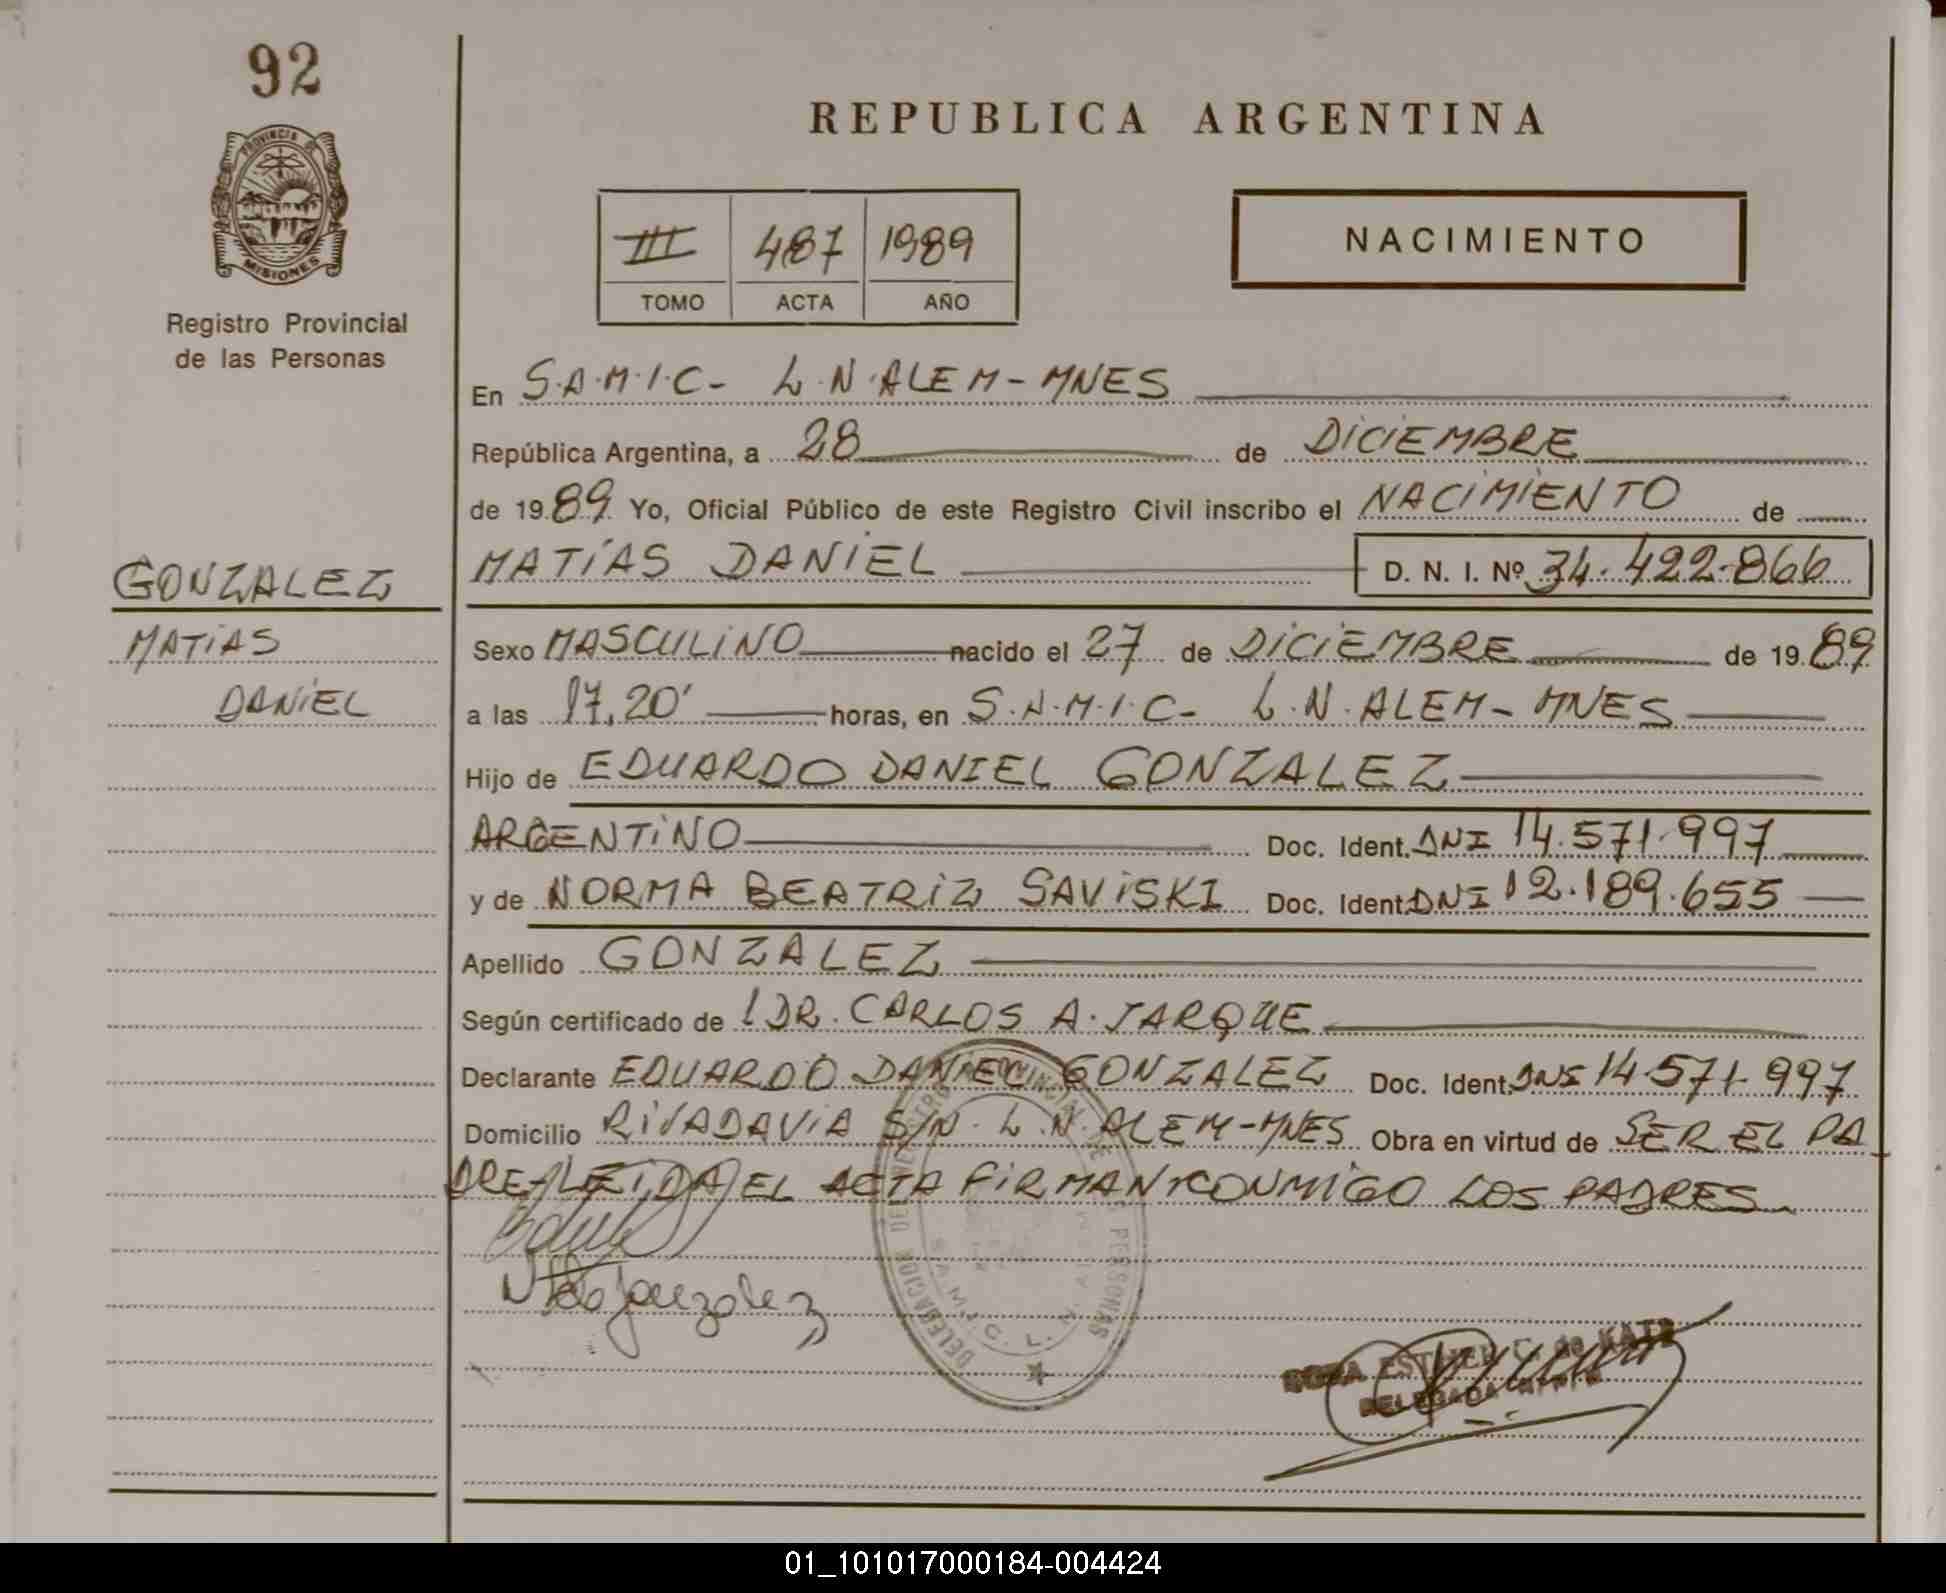 92
PROVINCIA DE
MISIONES
Registro Provincial
de las Personas
REPUBLICA ARGENTINA
III 487 1989
TOMO ACTA AÑO
NACIMIENTO
En S.A.M.I.C- L.N.ALEM-MNES
República Argentina, a 28 de DICIEMBRE
de 1989 Yo, Oficial Público de este Registro Civil inscribo el NACIMIENTO de
MATÍAS DANIEL D. N. I. Nº 34.422.866
GONZALEZ
MATIAS
DANIEL
Sexo MASCULINO nacido el 27 de DICIEMBRE de 1989
a las 17,20' horas, en S.A.M.I.C- L.N.ALEM-MNES
Hijo de EDUARDO DANIEL GONZALEZ
ARGENTINO Doc. Ident. DNI 14.571.997
y de NORMA BEATRIZ SAVISKI Doc. Ident. DNI 12.189.655
Apellido GONZALEZ
Según certificado de 1 DR. CARLOS A. JARQUE
Declarante EDUARDO DANIEL GONZALEZ Doc. Ident. DNI 14.571.997
Domicilio RIVADAVIA S/N. L.N.ALEM-MNES Obra en virtud de SER EL PA
DRE-LEIDA EL ACTA FIRMAN CONMIGO LOS PADRES
gonzalez
DELEGACION DEL REGISTRO PROVINCIAL DE PERSONAS
S.A.M.I.C. L.N.
ROSA ESTHER DE KATZ
DELEGADA
01_101017000184-004424